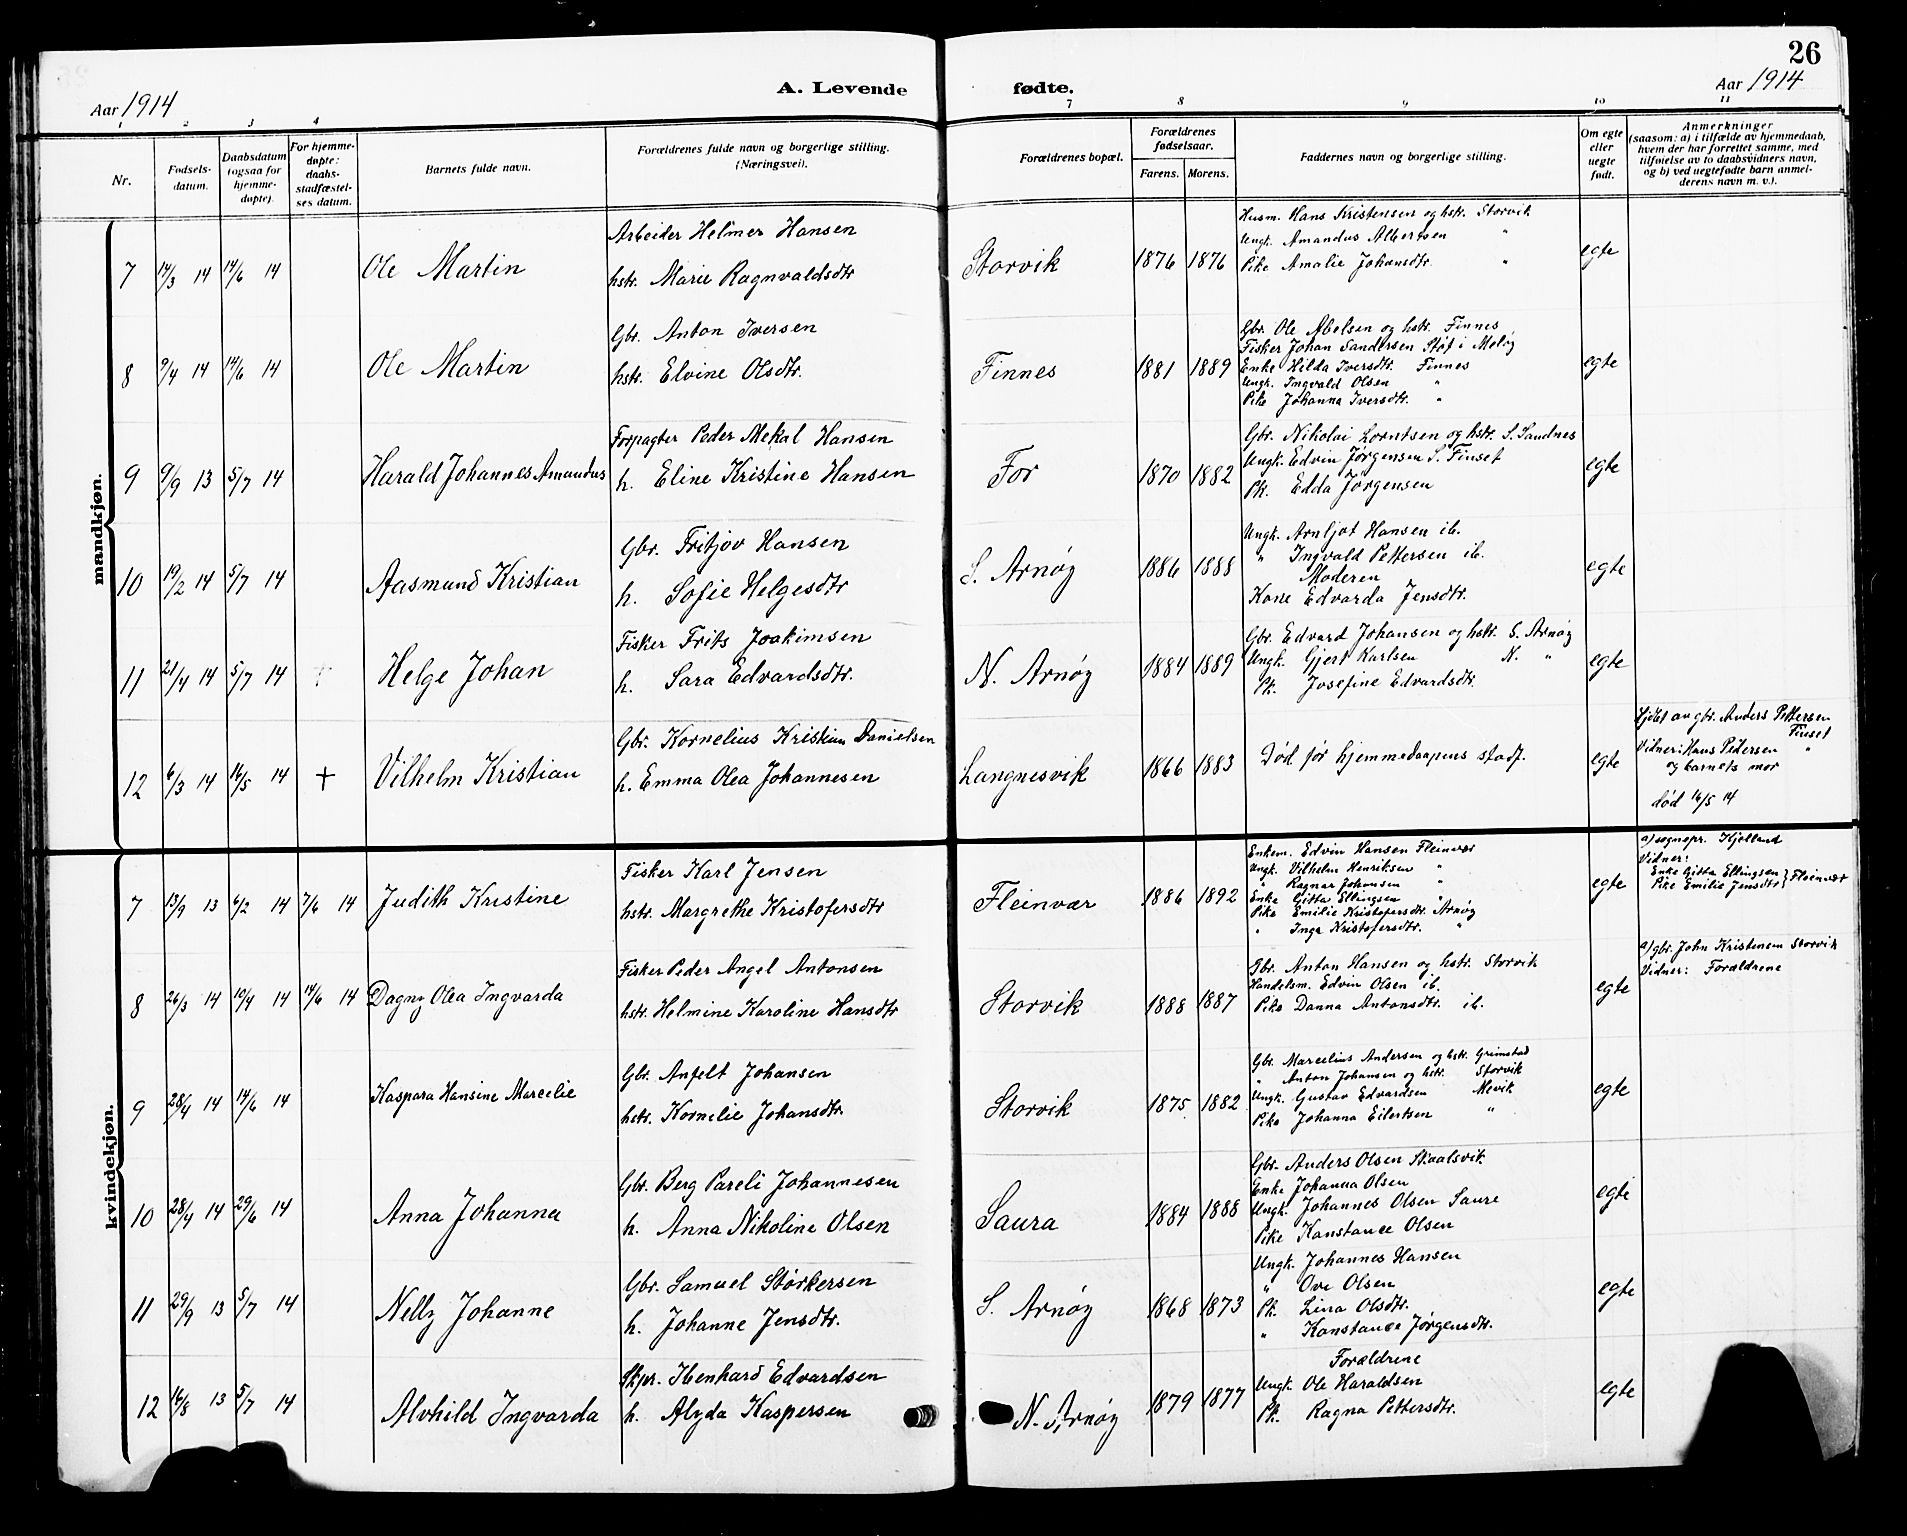 26
Aar 1914
A. Levende
fødte.
Aar 1914
1 2 3 4 7 8 9 10 11
Nr.
Fødsels-
datum.
Daabsdatum
(ogsaa for
hjemme-
døpte).
For hjemme-
døpte:
daabs-
stadfæstel-
ses datum.
Barnets fulde navn.
Forældrenes fulde navn og borgerlige stilling.
(Næringsvei).
Forældrenes bopæl.
Forældrenes
fødselsaar.
Farens. Morens.
Faddernes navn og borgerlige stilling.
Om egte
eller
uegte
født.
Anmerkninger
(saasom: a) i tilfælde av hjemmedaab,
hvem der har forrettet samme, med
tilføielse av to daabsvidners navn,
og b) ved uegtefødte barn anmel-
derens navn m. v.).
mandkjøn.
7 14/3 14 14/6 14 Ole Martin
Arbeider Helmer Hansen
hstr. Marie Ragnvaldsdtr
Storvik 1876 1876
Husm. Hans Kristensen og hstr. Storvik
Ungk. Amandus Albertsen "
Pike Amalie Johansdtr. "
egte
8 9/4 14 14/6 14 Ole Martin
Gbr. Anton Iversen
hstr. Elvine Olsdtr.
Finnes 1881 1889
Gbr. Ole Abelsen og hstr. Finnes
Fisker Johan Sandersen Støt i Meløy
Enke Hilda Iversdtr. Finnes
Ungk. Ingvald Olsen "
Pike Johanna Iversdtr. "
egte
9 9/9 13 5/7 14 Harald Johannes Amandus
Forpagter Peder Mekal Hansen
h. Eline Kristine Hansen
For 1870 1882
Gbr. Nikolai Lorntsen og hstr. S. Sandnes
Ungk. Edvin Jørgensen S. Finset
Pk. Edda Jørgensen
egte
10 19/2 14 5/7 14 Aasmund Kristian
Gbr. Fritjov Hansen
h. Sofie Helgesdtr
S. Arnøy 1886 1888
Ungk. Arnljot Hansen ib.
" Ingvald Pettersen ib.
Moderen
Kone Edvarda Jensdtr.
egte
11 21/4 14 5/7 14 Helge Johan
Fisker Frits Joakimsen
h. Sara Edvardsdtr.
N. Arnøy 1884 1889
Gbr. Edvard Johansen og hstr. S. Arnøy
Ungk. Gjert Karlsen N. "
Pk. Josefine Edvardsdtr.
egte
12 6/3 14 16/5 14 + Vilhelm Kristian
Gbr. Kornelius Kristian Danielsen
h. Emma Olea Johannesen
Langnesvik 1866 1883
Død før hjemmedaapens stadf.
egte
hjdøt av gbr. Anders Pettersen
Finset
Vidner: Hans Pedersen "
og barnets mor
død 16/5 14
kvindekjøn.
7 13/9 13 6/2 14 7/6 14 Judith Kristine
Fisker Karl Jensen
hstr. Margrethe Kristofersdtr
Fleinvær 1886 1892
Enkem. Edvin Hansen Fleinvær
Ungk. Vilhelm Henriksen "
" Ragnar Johansen "
Enke Gitta Ellingsen "
Pike Emilie Kristofersdtr. Arnøy
" Inga Kristofersdtr. "
egte
a) sognepr. Kjelland
Vidner:
Enke Gitta Ellingsen } Fleinvær
Pike Emilie Jensdtr
8 26/3 14 19/4 14 14/6 14 Dagny Olea Ingvarda
Fisker Peder Angel Antonsen
hstr. Helmine Karoline Hansdtr
Storvik 1888 1887
Gbr. Anton Hansen og hstr. Storvik
Handelsm. Edvin Olsen ib.
Pike Danna Antonsdtr. ib.
egte
a) gbr. John Kristensen Storvik
Vidner: Forældrene
9 28/4 14 14/6 14 Kaspara Hansine Marcelie
Gbr. Anfelt Johansen
hstr. Kornelie Johansdtr
Storvik 1875 1882
Gbr. Marcelius Andersen og hstr. Grimstad
" Anton Johansen og hstr. Storvik
Ungk. Gustav Edvardsen Mevik
Pike Johanna Eilertsen "
egte
10 28/4 14 29/6 14 Anna Johanna
Gbr. Berg Pareli Johannesen
h. Anna Nikoline Olsen
Saura 1884 1888
Gbr. Anders Olsen Skaalsvik
Enke Johanna Olsen
Ungk. Johannes Olsen Saure
Pike Konstance Olsen
egte
11 29/9 13 5/7 14 Nelly Johanne
Gbr. Samuel Størkersen
h. Johanne Jensdtr.
S. Arnøy 1868 1873
Ungk. Johannes Hansen
" Ove Olsen
Pk. Lina Olsdtr.
" Konstance Jørgensdtr.
egte
12 16/8 13 5/7 14 Alvhild Ingvarda
Skpr. Henhard Edvardsen
h. Alyda Kaspersen
N. Arnøy 1879 1877
Forældrene
Ungk. Ole Haraldsen
Pk. Ragna Pettersdtr.
egte